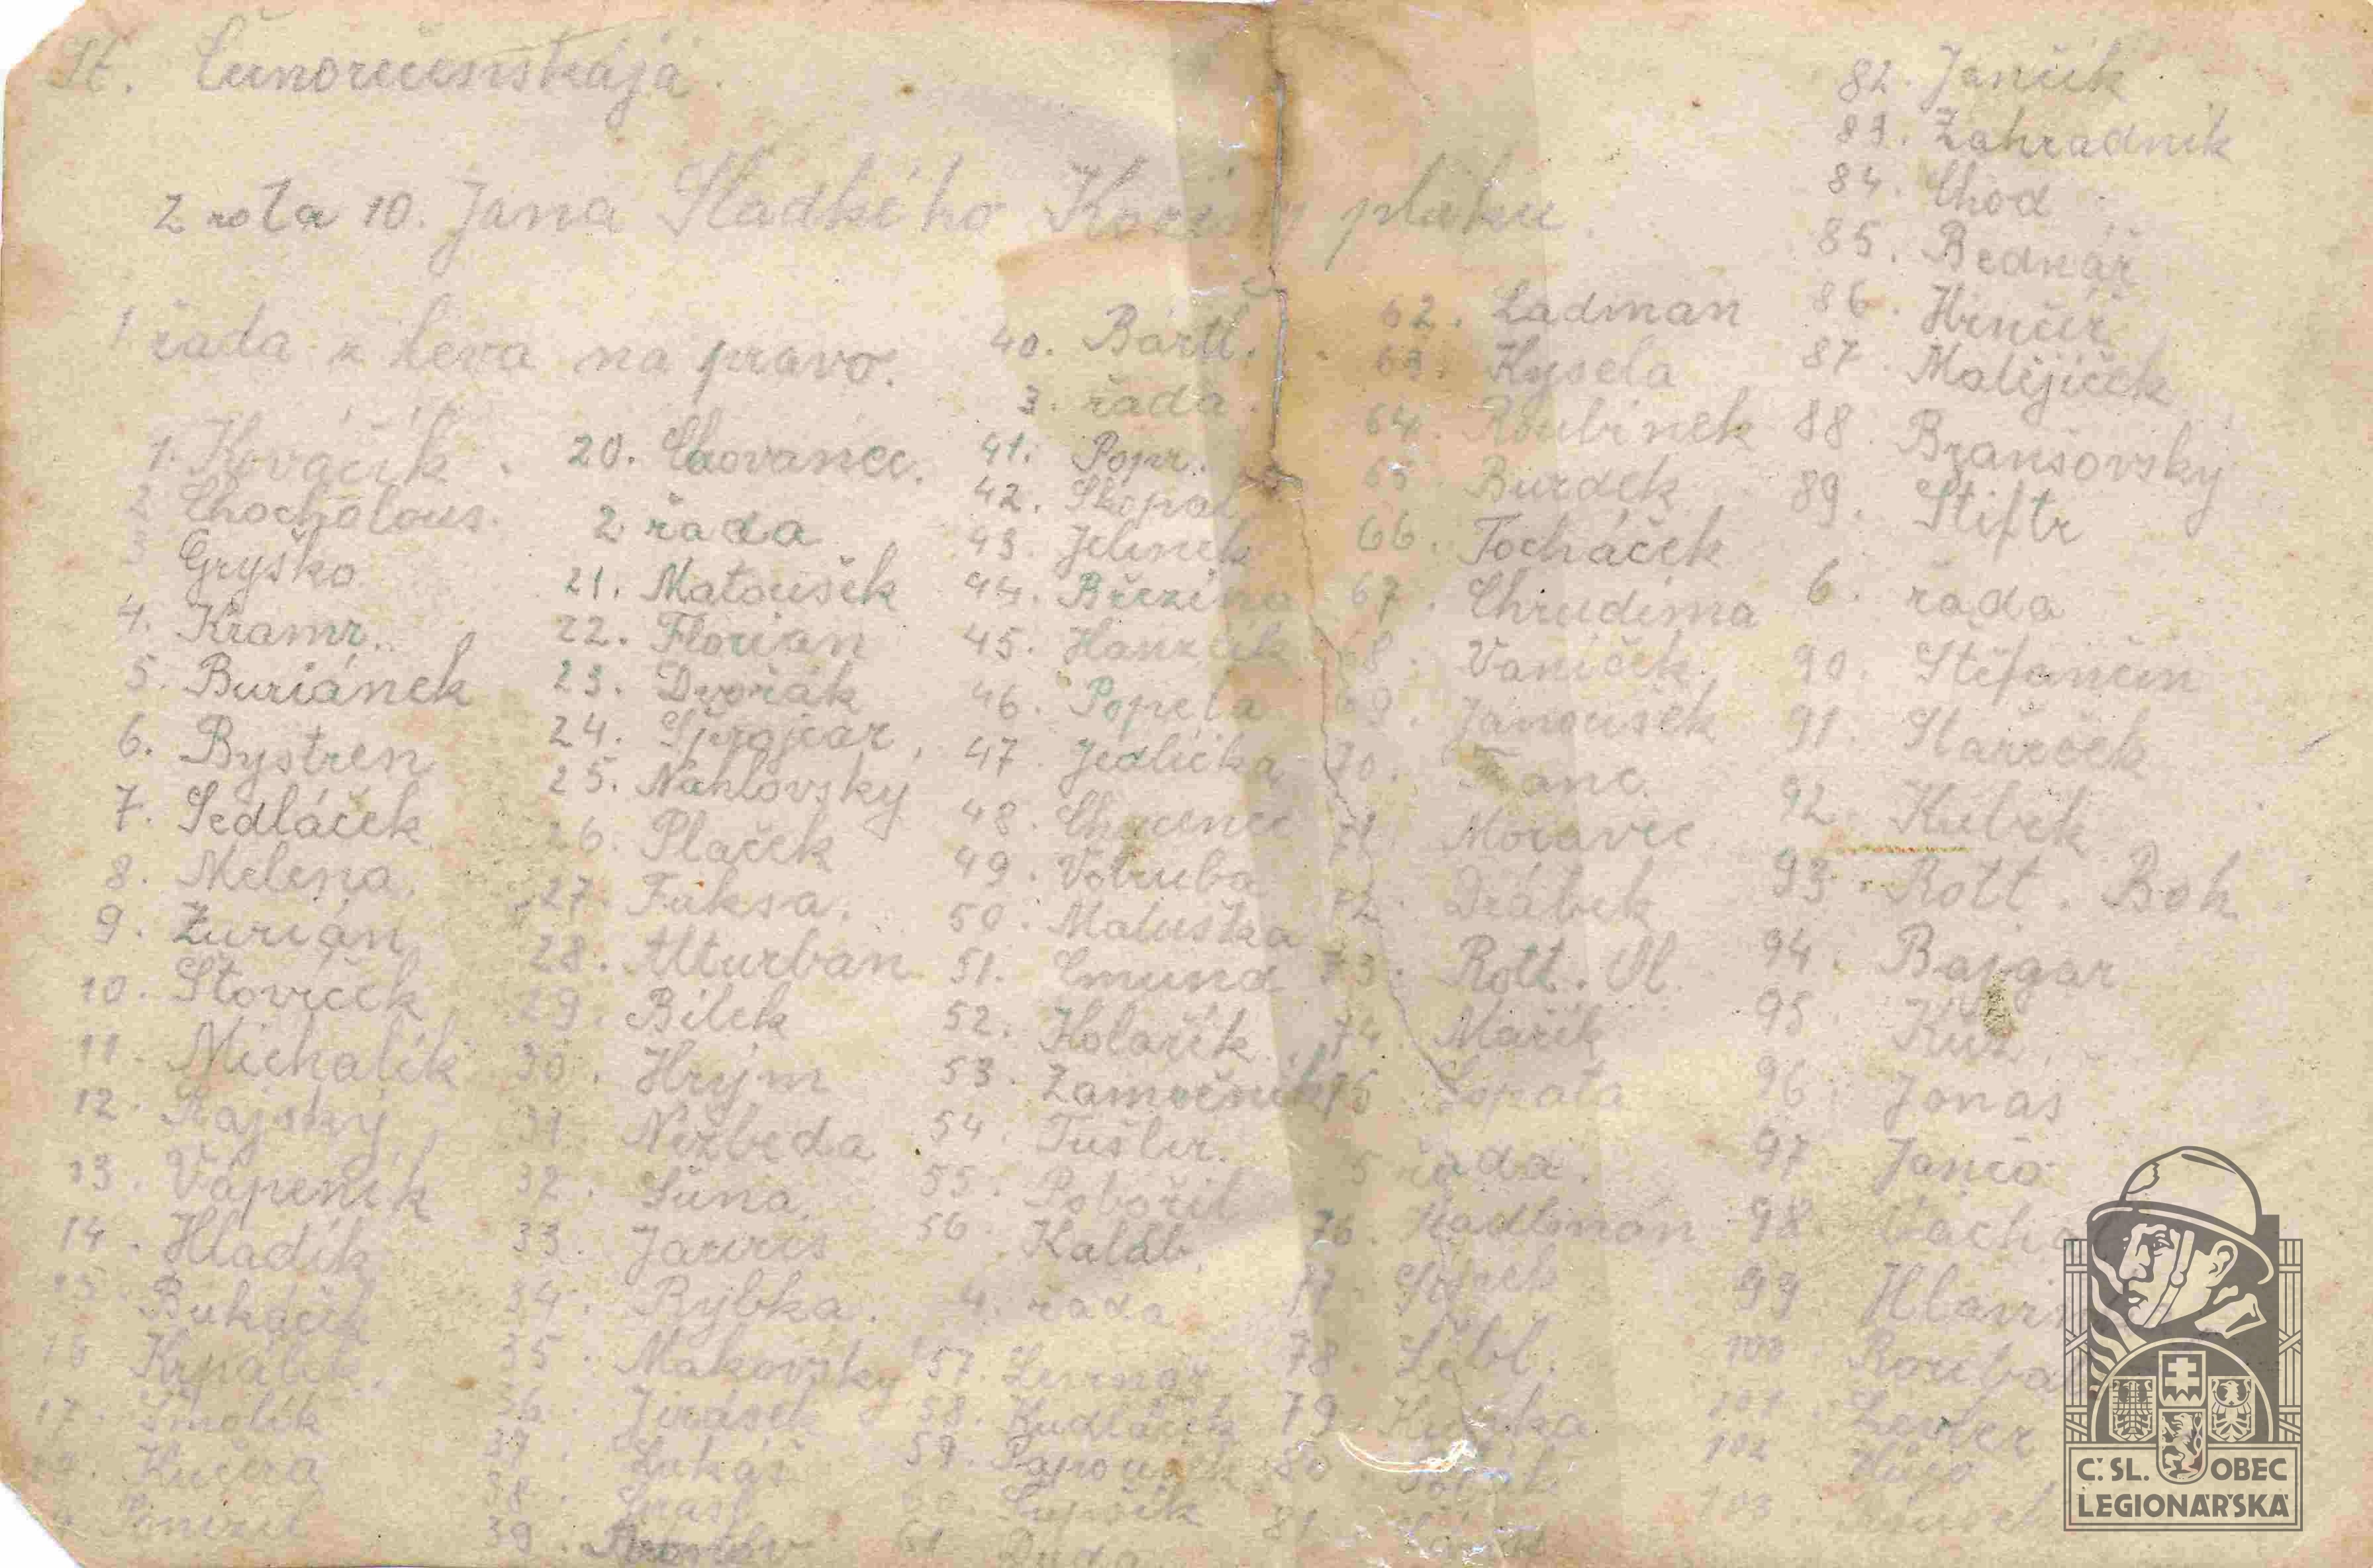 St.
2 rota 10. Jana Sladkého Koziny pluku.
1 řada z leva na pravo.
1. Kováčík.
2 Chocholous.
3 Gryško
4. Kramr.
5. Buriánek
6. Bystren
7. Sedláček
8. Melena.
9. Žurian
10. Šťovíček
11. Michalík
12. Rajský
13. Vápeník
14. Hladík
15. Bukáček
16 Krpálek.
17. Smolík
Kučera
20. Chovanec.
2 řada
21. Matoušek
22. Florian
23. Dvořák
24.
25. Nahlovský
26. Plaček
27. Fuksa.
28. Alturban
29. Bílek
30. Hrým
31. Nežbeda
32. Šůna.
33.
34. Rybka.
35. Makovsky
36. Jirásek
37. Lukáš
38.
39.
40. Bártl.
3. řada.
41. Popr.
42. Skopal
43. Jelínek
44. Březina
45. Hanzlík
46. Popela
47. Jedlička
48.
49. Votruba
50. Matuška
51. Smund
52. Kolařík
53. Zamočník
54. Tušler.
55. Pobořil
56. Kaláb.
4. řada
57.
58. Kudláček
59. Papoušek
61. Duda
62. Ladman
63. Kysela
64. Roubinek
65. Burdek
66. Tocháček
67. Chrudima
68. Vaníček.
69. Janoušek
70. Franc.
71. Moravec
72. Drábek
73. Rott. Vl.
74. Mařík
75. Lopata
5 řada.
76. Kadlman
77
78.
79.
80.
81
82. Jančík
83. Zahradník
84. Chod
85. Bednář
86. Hrnčíř
87. Matějíček
88. Branšovský
89. Štiftr
6. řada
90. Štěfančin
91. Stařeček
92. Kubík
93. Rott. Boh
94. Bajgar
95
96. Jonáš
97 Jančo
98.
99
100
101
102
103.
Č.SL. OBEC
LEGIONÁŘSKÁ